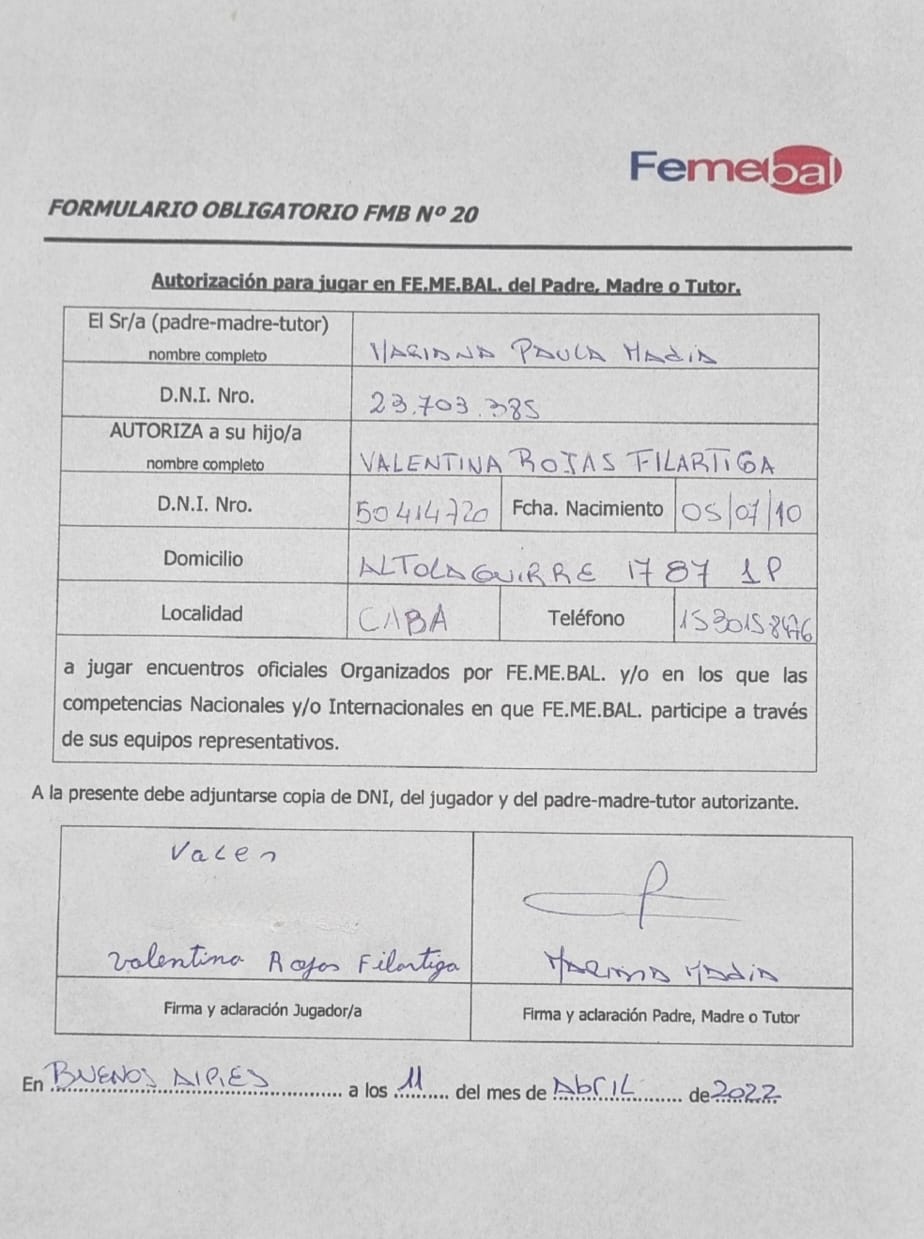 Femebal
FORMULARIO OBLIGATORIO FMB Nº 20
Autorización para jugar en FE.ME.BAL. del Padre, Madre o Tutor.
El Sr/a (padre-madre-tutor)
nombre completo
MARIANA PAULA MADIA
D.N.I. Nro.
23.703.385
AUTORIZA a su hijo/a
nombre completo
VALENTINA ROJAS FILARTIGA
D.N.I. Nro.
50414720
Fcha. Nacimiento
05/07/10
Domicilio
ALTOLAGUIRRE 1787 1P
Localidad
CABA
Teléfono
1530158476
a jugar encuentros oficiales Organizados por FE.ME.BAL. y/o en los que las
competencias Nacionales y/o Internacionales en que FE.ME.BAL. participe a través
de sus equipos representativos.
A la presente debe adjuntarse copia de DNI, del jugador y del padre-madre-tutor autorizante.
Valen
Valentina Rojas Filartiga
MARIANA MADIA
Firma y aclaración Jugador/a
Firma y aclaración Padre, Madre o Tutor
En BUENOS AIRES a los 11 del mes de AbRIL de 2022